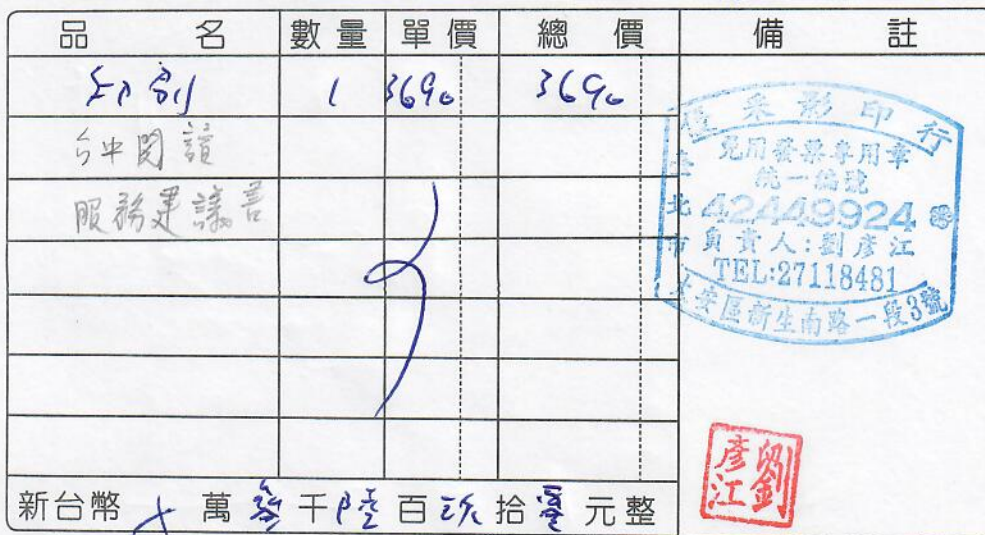 品名 數量 單價 總價 備註
印刷 1 3690 3690
台中閱讀
服務建議書
采影印行
免用發票專用章
統一編號
42449924
台北市
負責人:劉彥江
TEL:27118481
大安區新生南路一段3號
劉彥江
新台幣 萬參千陸百玖拾零元整